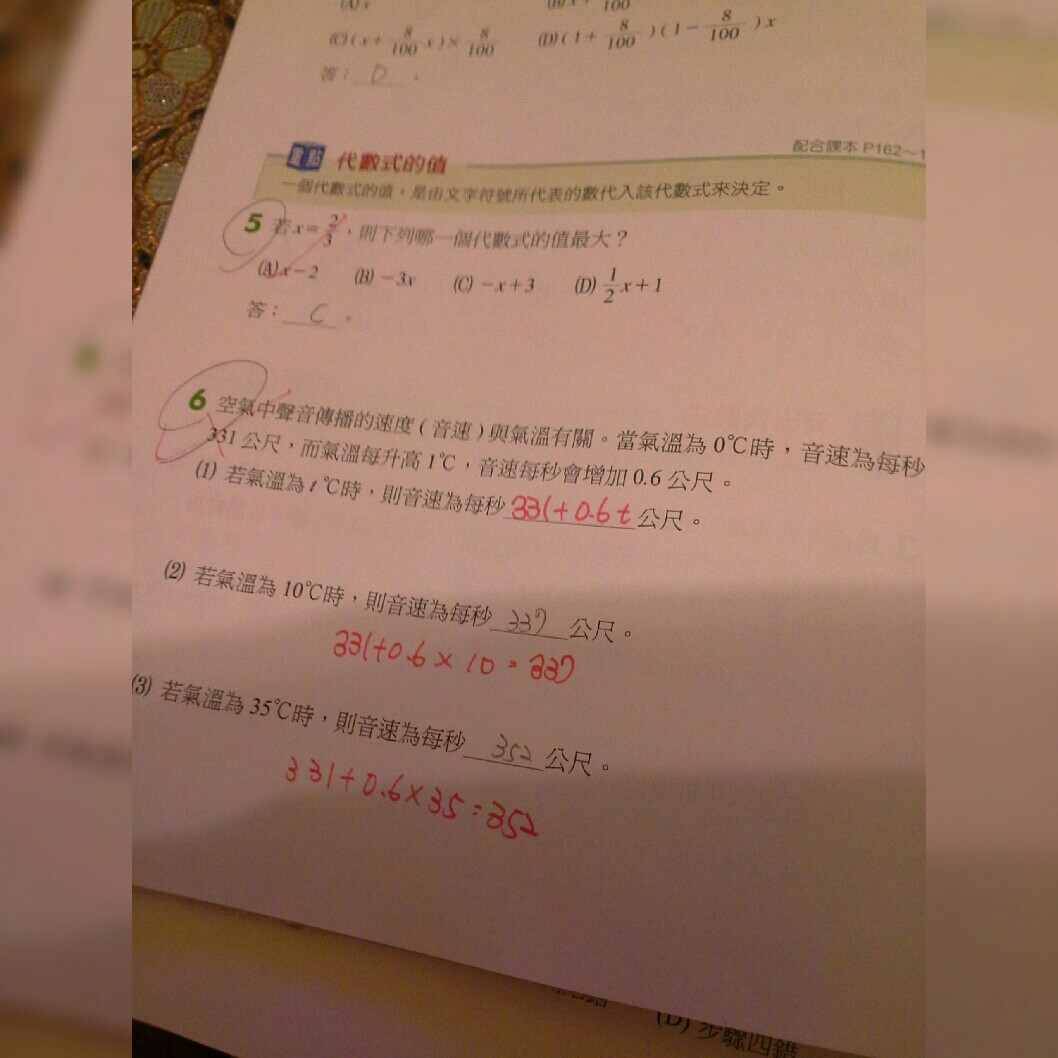 (A) x
100
(C) (x + 8/100 x) × 8/100 (D) (1 + 8/100)(1 − 8/100)x
答：D。
重點 代數式的值
配合課本 P162～1
一個代數式的值，是由文字符號所代表的數代入該代數式來決定。
5 若 x = 2/3，則下列哪一個代數式的值最大？
(A) x − 2 (B) −3x (C) −x + 3 (D) 1/2 x + 1
答：C。
6 空氣中聲音傳播的速度（音速）與氣溫有關。當氣溫為 0℃時，音速為每秒
331 公尺，而氣溫每升高 1℃，音速每秒會增加 0.6 公尺。
(1) 若氣溫為 t ℃時，則音速為每秒 331+0.6t 公尺。
(2) 若氣溫為 10℃時，則音速為每秒 337 公尺。
331+0.6 × 10 = 337
(3) 若氣溫為 35℃時，則音速為每秒 352 公尺。
331+0.6×35=352
(D) 步驟四錯